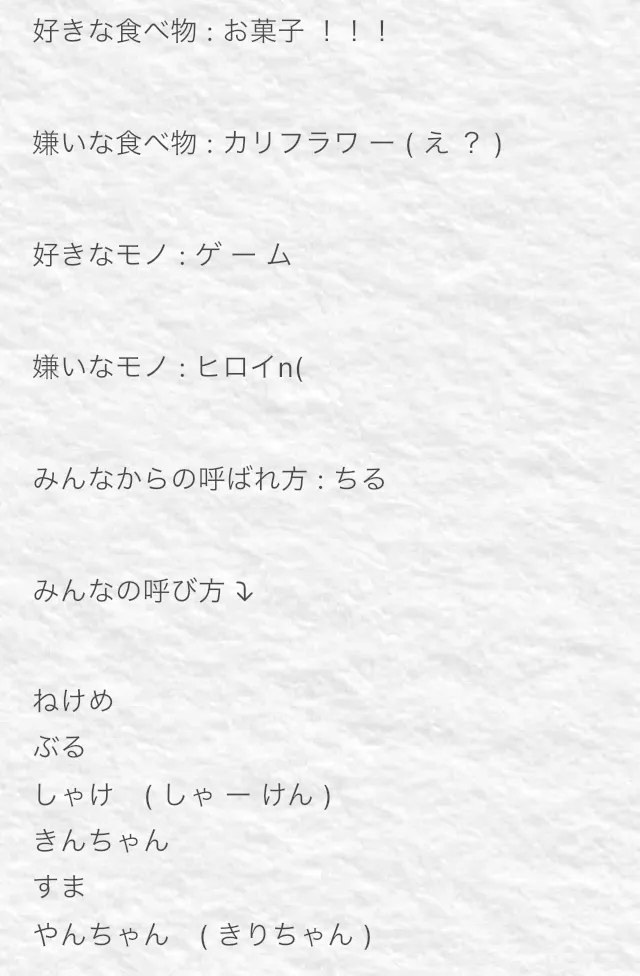 好きな食べ物 : お菓子 ！！！
嫌いな食べ物 : カリフラワ ー ( え ？ )
好きなモノ : ゲ ー ム
嫌いなモノ : ヒロイn(
みんなからの呼ばれ方 : ちる
みんなの呼び方 ⤵
ねけめ
ぶる
しゃけ　( しゃ ー けん )
きんちゃん
すま
やんちゃん　( きりちゃん )